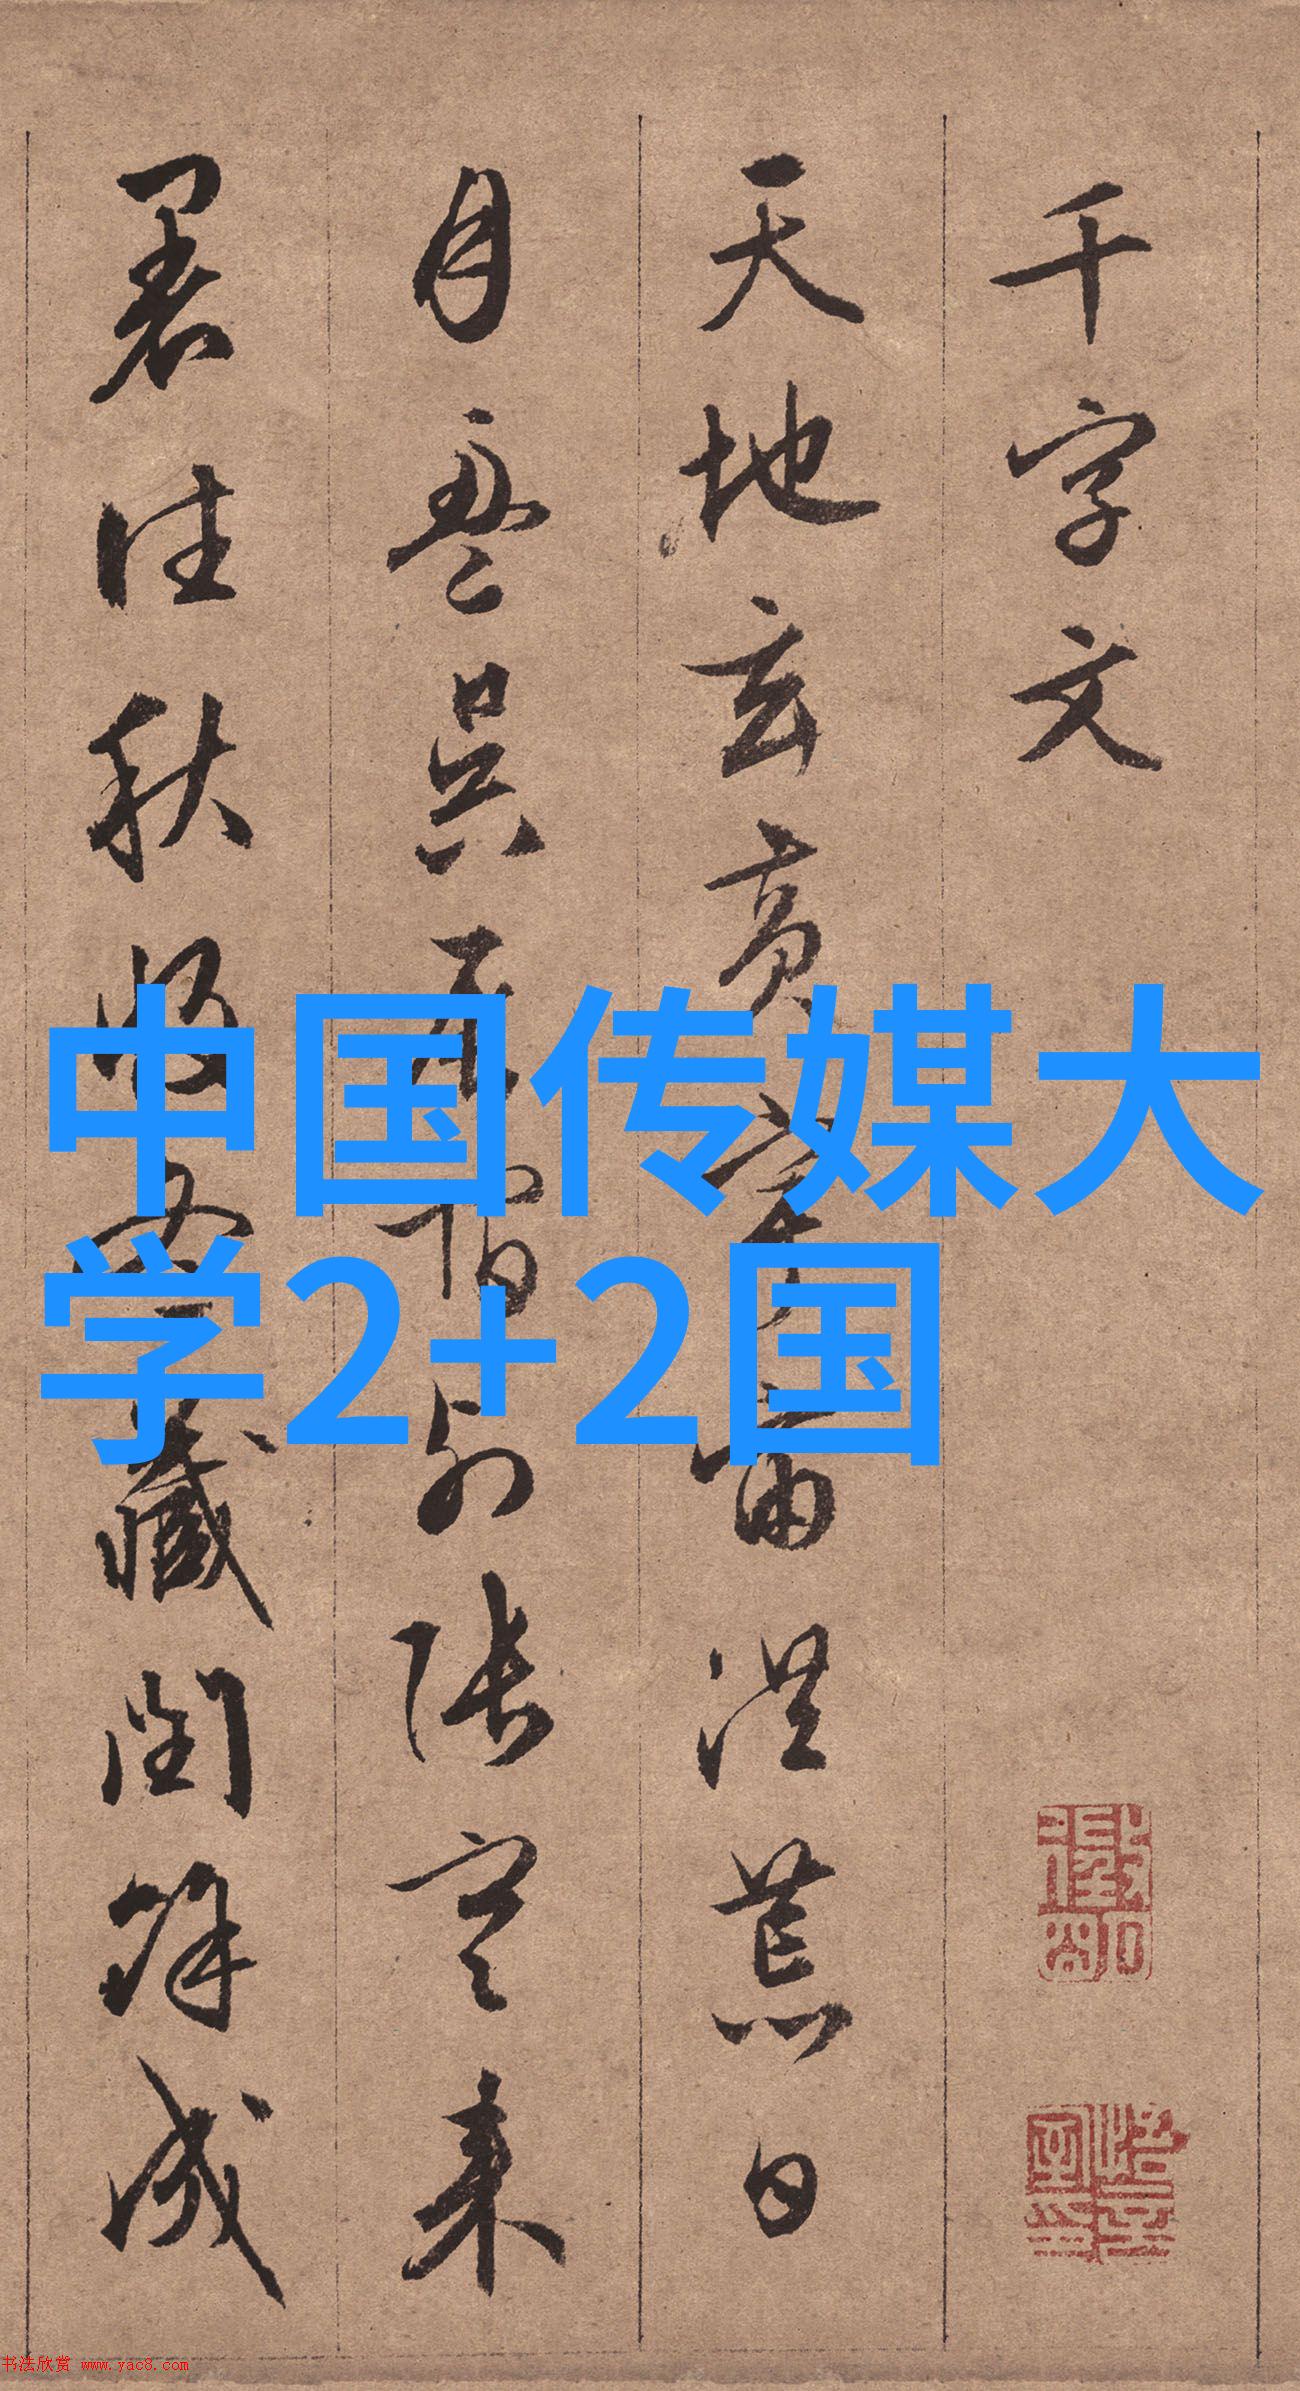 千字文
天地玄黄宇宙洪荒日
月盈昃辰宿列张寒来
暑往秋收冬藏闰余成
中国传媒大
学2+2国
书法欣赏 www.yac8.com